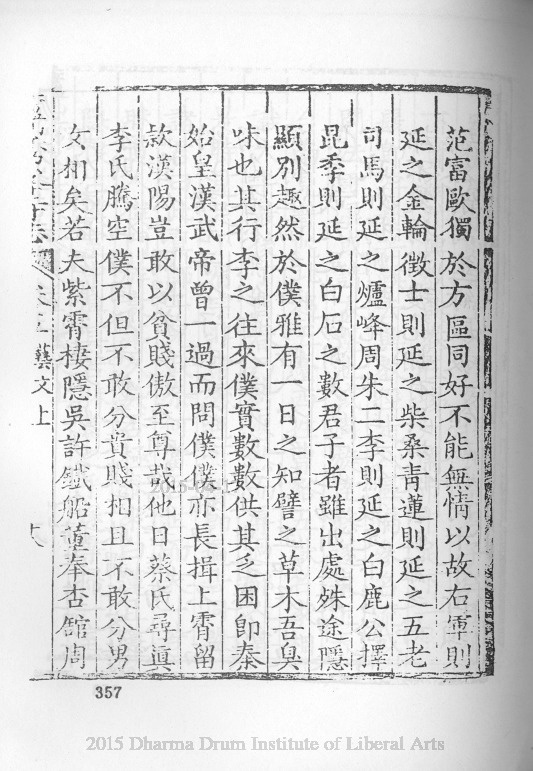 范富歐獨於方區同好不能無情以故右軍則
延之金輪徵士則延之柴桑青蓮則延之五老
司馬則延之爐峰周朱二李則延之白鹿公擇
昆季則延之白石之數君子者雖出處殊途隱
顯別趣然於僕雅有一日之知譬之草木吾臭
味也其行李之往來僕實數數供其乏困卽秦
始皇漢武帝曾一過而問僕僕亦長揖上霄留
款漢陽豈敢以貧賤傲至尊哉他日蔡氏尋真
李氏騰空僕不但不敢分貴賤相且不敢分男
女相矣若夫紫霄棲隱吳許鐵船董奉杏館周
藝文上
十八
357
2015 Dharma Drum Institute of Liberal Arts